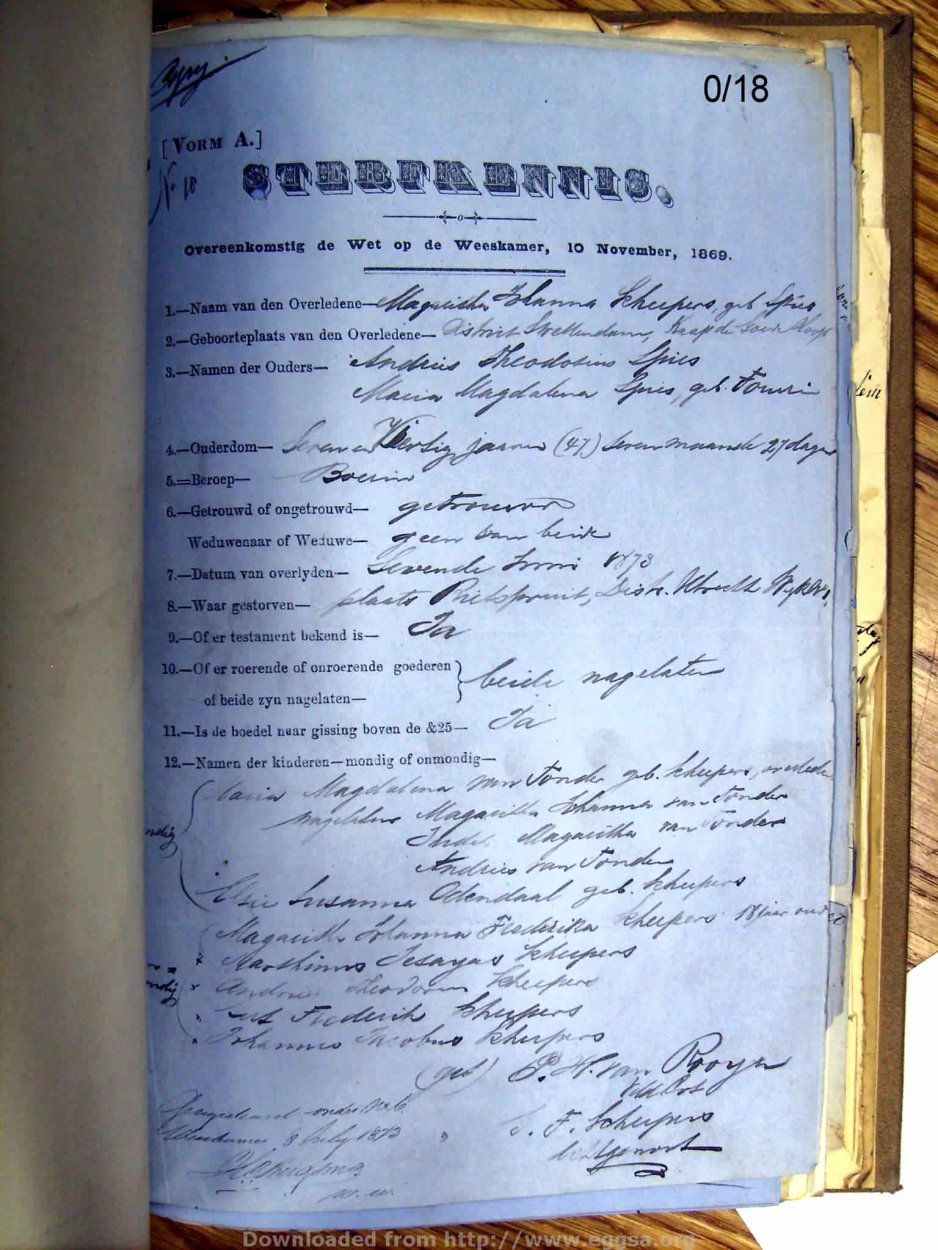 Copy.
0/18
[VORM A.]
No 18
STERFKENNIS,
Overeenkomstig de Wet op de Weeskamer, 10 November, 1869.
1.—Naam van den Overledene— Magaritha Johanna Scheepers, geb Spies
2.—Geboorteplaats van den Overledene— District Swellendam, Kaap de Goede Hoop
3.—Namen der Ouders— Andries Theodosius Spies
Maria Magdalena Spies, geb. Fourie
4.—Ouderdom— Seven en Veertig jaaren (47) seven maande 27 dage
5.=Beroep— Boerin
6.—Getrouwd of ongetrouwd— getrouwd
Weduwenaar of Weduwe— geen van beide
7.—Datum van overlyden— Sevende Juni 1873
8.—Waar gestorven— plaats Rietspruit, Distr. Utrecht Wyk
9.—Of er testament bekend is— Ja
10.—Of er roerende of onroerende goederen } beide nagelaten
of beide zyn nagelaten—
11.—Is de boedel naar gissing boven de &25— Ja
12.—Namen der kinderen—mondig of onmondig—
Maria Magdalena van Tonder geb. Scheepers, overleden
nagelaten Magaritha Johanna van Tonder
Magaritha van Tonder
Andries van Tonder
Elsie Susanna Odendaal geb. Scheepers
Magaritha Johanna Frederika Scheepers 18 jaar oud
Marthinus Jesayas Scheepers
Andries Theodorus Scheepers
Frederik Scheepers
Johannes Jacobus Scheepers
(get) P. H. van Rooyen
Veld Cort
Geregistreerd onder No 6
Weeskamer 8 July 1873 " F. Scheepers
w. w.
Downloaded from http://www.eggsa.org